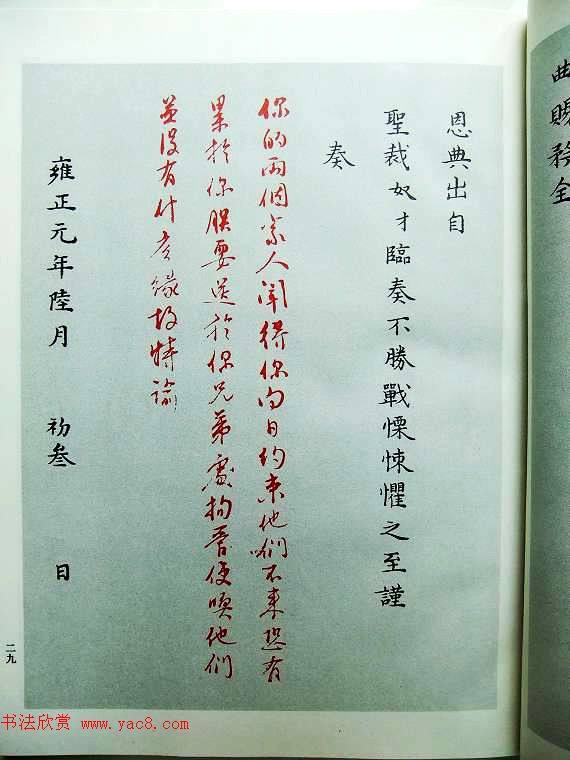 曲賜務全
恩典出自
聖裁奴才臨奏不勝戰慄悚懼之至謹
奏
你的兩個家人聞得你向日約束他們不来恐有
累於你朕要送於你兄弟處拘管使喚他們
並沒有什麼緣故特諭
雍正元年陸月 初叁 日
二九
书法欣赏 www.yac8.com